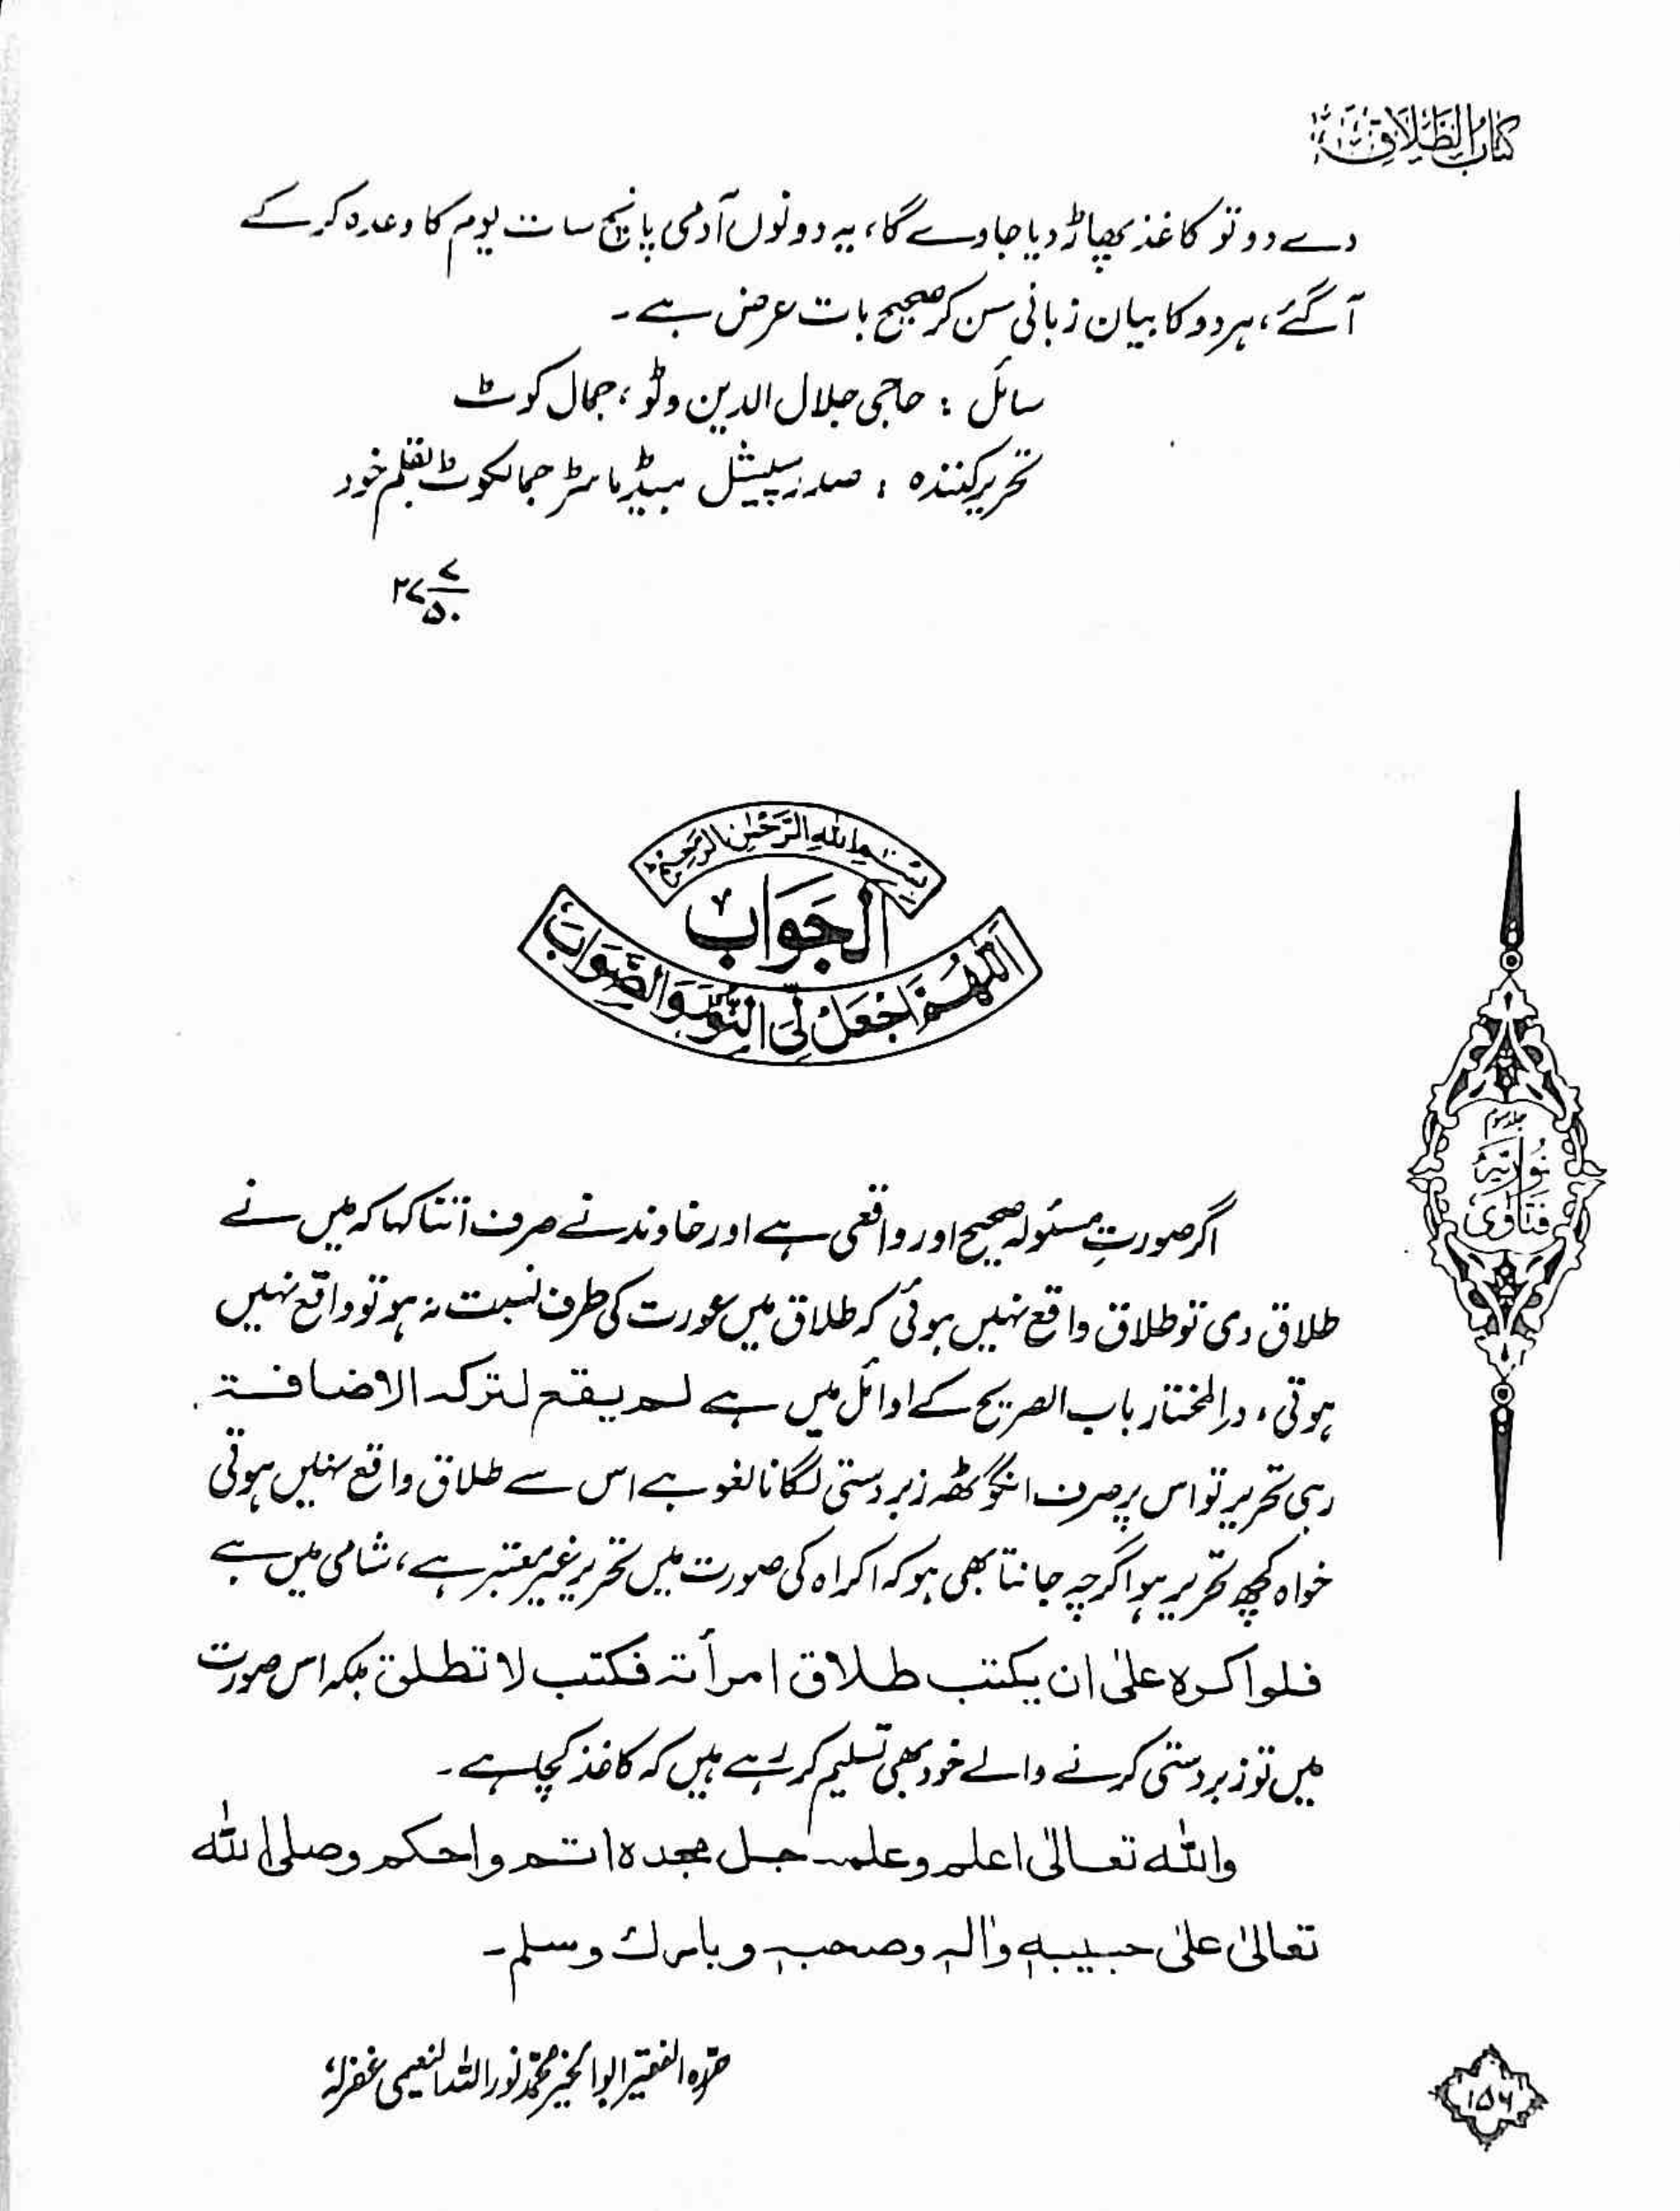 کتاب الطلاق
دے دو تو کاغذ پھاڑ دیا جاوے گا، یہ دونوں آدمی پانچ سات یوم کا وعدہ کر کے
آ گئے، ہر دو کا بیان زبانی سن کر صحیح بات عرض ہے۔
سائل : حاجی جلال الدین وٹو، جمال کوٹ
تحریر کنندہ : صدر سپیشل ہیڈ ماسٹر جمالکوٹ بقلم خود
۲۷/۷/۵۰
بِسْمِ اللهِ الرَّحْمٰنِ الرَّحِيْمِ
الجَوَابُ
اَللّٰهُمَّ اجْعَلْ لِّيَ النُّوْرَ وَالصَّوَابَ
جلد سوم
فتاویٰ نوریہ
اگر صورتِ مسئولہ صحیح اور واقعی ہے اور خاوند نے صرف اتنا کہا کہ میں نے
طلاق دی تو طلاق واقع نہیں ہوئی کہ طلاق میں عورت کی طرف نسبت نہ ہو تو واقع نہیں
ہوتی، در المختار باب الصریح کے اوائل میں ہے لم يقع لتركه الاضافة.
رہی تحریر تو اس پر صرف انگوٹھہ زبردستی لگانا لغو ہے اس سے طلاق واقع نہیں ہوتی
خواہ کچھ تحریر ہو اگرچہ جانتا بھی ہو کہ اکراہ کی صورت میں تحریر غیر معتبر ہے، شامی میں ہے
فلو اكره علىٰ ان يكتب طلاق امرأته فكتب لا تطلق بلکہ اس صورت
میں تو زبردستی کرنے والے خود بھی تسلیم کر رہے ہیں کہ کاغذ کچا ہے۔
والله تعالىٰ اعلم وعلمه جل مجده اتم واحكم وصلى الله
تعالىٰ علىٰ حبيبه واٰله وصحبه وبارك وسلم۔
حررہ الفقیر ابوالخیر محمد نور اللہ النعیمی غفرلہٗ
۱۵۶